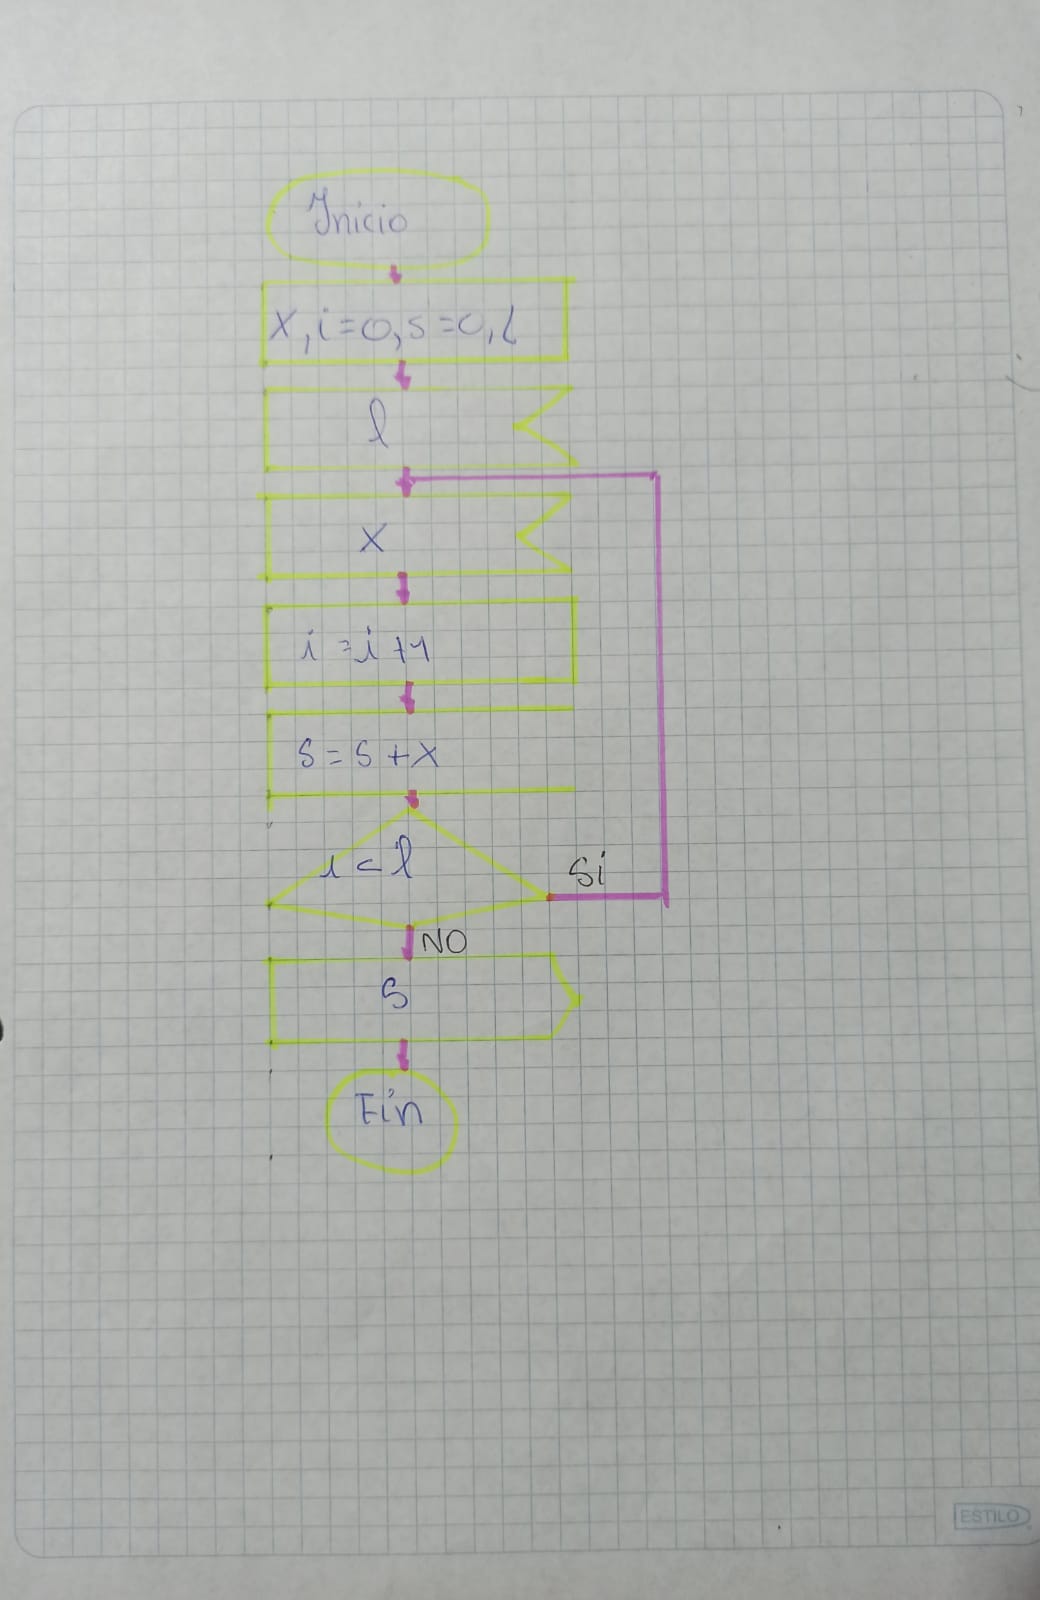 Inicio
x, i=0, s=0, l
l
x
i = i +1
s = s + x
i < l
Si
NO
s
Fin
ESTILO